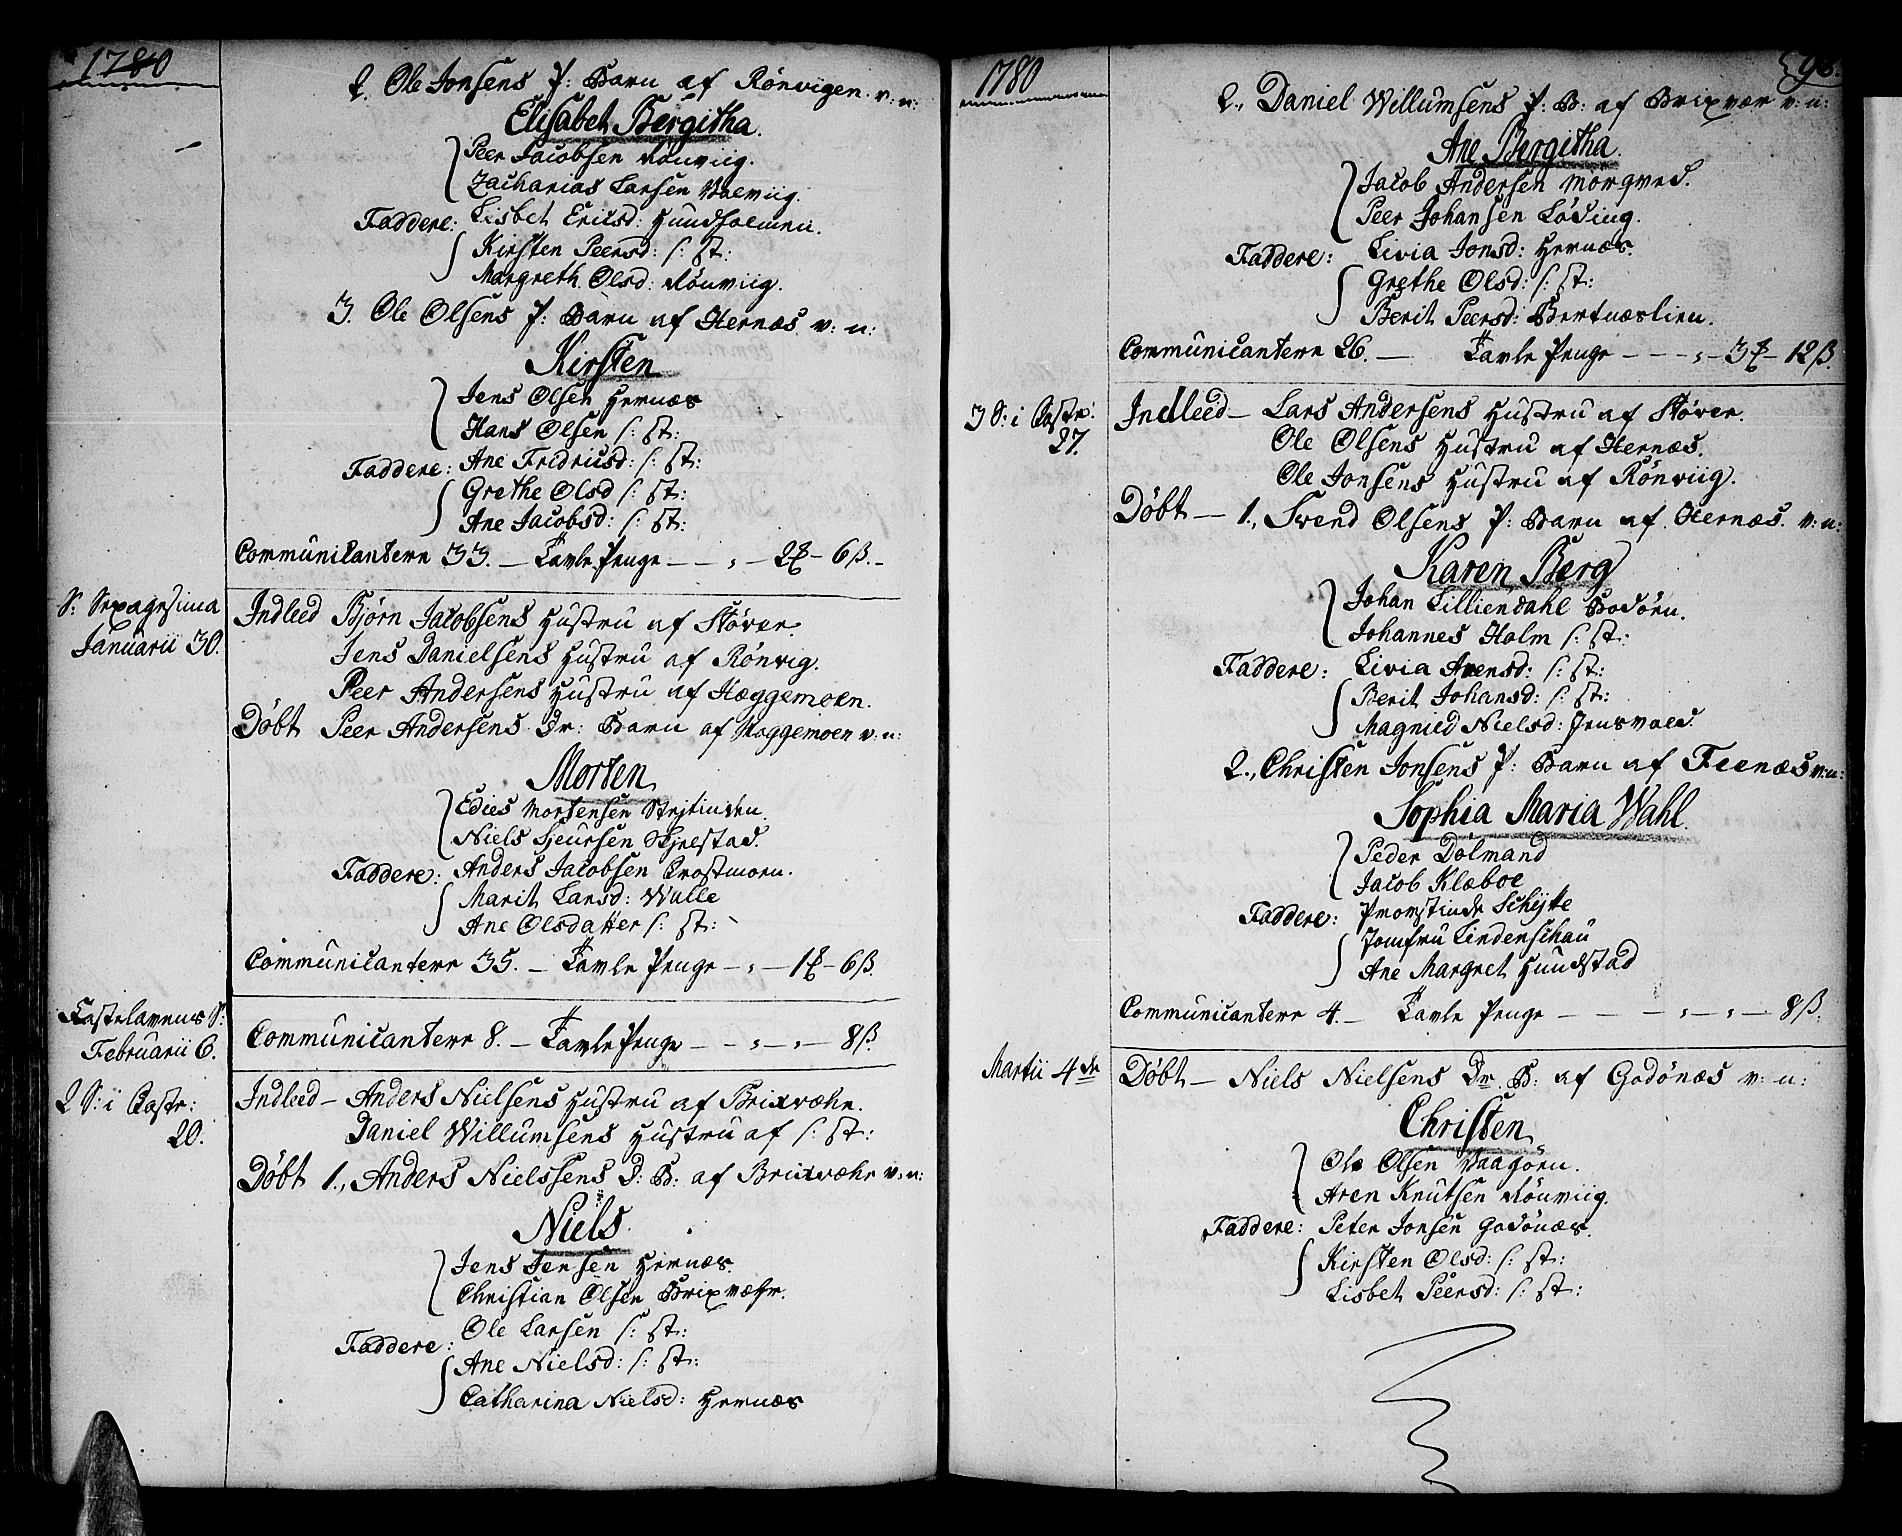 1780
2. Ole Jonsens P: Barn af Rönvigen. v: n:
Elisabet Bergitha.
Peer Jacobsen Rönviig.
Zacharias Larsen Valviig.
Faddere: Lisbet Ericsd: Hundholmen.
Kirsten Peersd: s: st:
Margreth Olsd: Rönviig.
3. Ole Olsens P: Barn af Hernæs v: n:
Kirsten
Jens Olsen Hernæs
Hans Olsen s: st:
Faddere: Ane Fridricsd: s: st:
Grethe Olsd s: st:
Ane Jacobsd: s: st:
Communicantere 33. — Tavle Penge — — „ — 2 — 6 ß. –
S: Sexagesima
Januarii 30.
Indleed Bjørn Jacobsens Hustru af Støver.
Jens Danielsens Hustru af Rönvig.
Peer Andersens Hustru af Hæggemoen.
Döbt Peer Andersens Dr: Barn af Haggemoen v: n:
Morten
Edies Mortensen Strjtinden.
Niels Sjeursen Skjelstad.
Faddere: Anders Jacobsen Prostmoen.
Marit Larsd: Wulle
Ane Olsdatter s: st:
Communicantere 35. — Tavle Penge — „ — 1 — 6 ß.
Fastelavens S:
Februarii 6.
Communicantere 8. — Tavle Penge — — „ — „ — 8 ß.
2 S: i Faste:
20.
Indleed — Anders Nielsens Hustru af Brixvæhr.
Daniel Willumsens Hustru af s: st:
Döbt 1., Anders Nielssens D: B: af Brixvæhr v: n:
Niels.
Jens Jensen Hernæs.
Christian Olsen Brixvæhr.
Ole Larsen s: st:
Faddere:
Ane Nielsd: s: st:
Catharina Nielsd: Hernæs
1780
98.
2., Daniel Willumsens P: B: af Brixvær v: n:
Ane Bergitha.
Jacob Andersen Mörqved.
Peer Johansen Löding.
Faddere: Livia Jonsd: Hernæs.
Grethe Olsd: s: st:
Berit Peersd: Bertnæslien.
Communicantere 26. — Tavle Penge — — — „ — 3 — 12 ß.
3 S: i Faste:
27.
Indleed — Lars Andersens Hustru af Støver.
Ole Olsens Hustru af Hernæs.
Ole Jonsens Hustru af Rönviig.
Döbt — 1., Svend Olsens P: Barn af Hernæs. v: n:
Karen Berg
Johan Lilliendahl Bodöen.
Johannes Holm s: st:
Faddere: Livia Arensd: s: st:
Berit Johansd: s: st:
Magnild Nielsd: Jensvold.
2., Christen Jonsens P: Barn af Feenæs v: n:
Sophia Maria Wahl.
Peder Dolmand
Jacob Klæboe
Faddere: Proustinde Schytte
Jomfru Lindenschau
Ane Margret Hundstad
Communicantere 4. — Tavle Penge — — — „ — „ — 8 ß.
Martii 4de
Döbt — Niels Nielsens Dr. B: af Godönæs v: n:
Christen
Ole Olsen Vaagöen.
Aren Knutsen Rönviig.
Faddere: Peter Jonsen Godönæs.
Kirsten Olsd: s: st:
Lisbet Peersd: s: st: